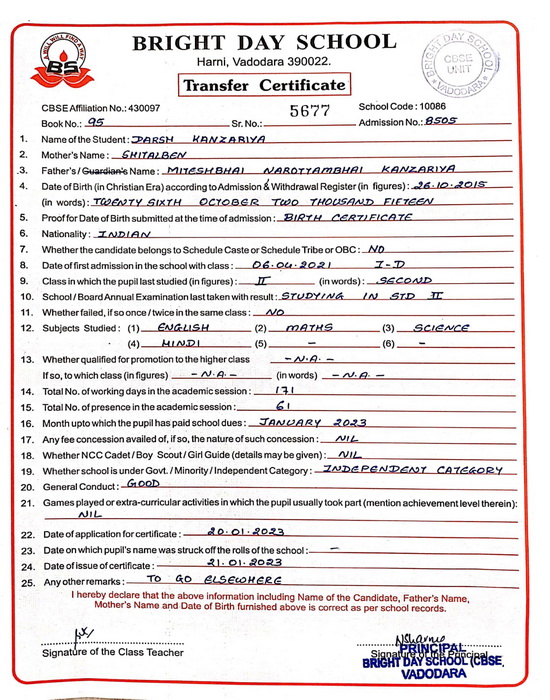 I WILL WILL FIND A WAY
BS
BRIGHT DAY SCHOOL
Harni, Vadodara 390022.
BRIGHT DAY SCHOOL
CBSE
UNIT
VADODARA
Transfer Certificate
CBSE Affiliation No.: 430097
5677
School Code : 10086
Book No.: 95
Sr. No.:
Admission No.: 8505
1. Name of the Student : DARSH KANZARIYA
2. Mother's Name : SHITALBEN
3. Father's / Guardian's Name : MITESHBHAI NAROTTAMBHAI KANZARIYA
4. Date of Birth (in Christian Era) according to Admission & Withdrawal Register (in figures) : 26.10.2015
(in words) : TWENTY SIXTH OCTOBER TWO THOUSAND FIFTEEN
5. Proof for Date of Birth submitted at the time of admission : BIRTH CERTIFICATE
6. Nationality : INDIAN
7. Whether the candidate belongs to Schedule Caste or Schedule Tribe or OBC : NO
8. Date of first admission in the school with class : 06.04.2021 I-D
9. Class in which the pupil last studied (in figures) : II (in words) : SECOND
10. School / Board Annual Examination last taken with result : STUDYING IN STD II
11. Whether failed, if so once / twice in the same class : NO
12. Subjects Studied : (1) ENGLISH (2) MATHS (3) SCIENCE
(4) HINDI (5) – (6) –
13. Whether qualified for promotion to the higher class – N.A. –
If so, to which class (in figures) – N.A. – (in words) – N.A. –
14. Total No. of working days in the academic session : 171
15. Total No. of presence in the academic session : 61
16. Month upto which the pupil has paid school dues : JANUARY 2023
17. Any fee concession availed of, if so, the nature of such concession : NIL
18. Whether NCC Cadet / Boy Scout / Girl Guide (details may be given) : NIL
19. Whether school is under Govt. / Minority / Independent Category : INDEPENDENT CATEGORY
20. General Conduct : GOOD
21. Games played or extra-curricular activities in which the pupil usually took part (mention achievement level therein) :
NIL
22. Date of application for certificate : 20.01.2023
23. Date on which pupil's name was struck off the rolls of the school : –
24. Date of issue of certificate : 21.01.2023
25. Any other remarks : TO GO ELSEWHERE
I hereby declare that the above information including Name of the Candidate, Father's Name,
Mother's Name and Date of Birth furnished above is correct as per school records.
Signature of the Class Teacher
NSharma
PRINCIPAL
Signature of the Principal
BRIGHT DAY SCHOOL (CBSE,
VADODARA